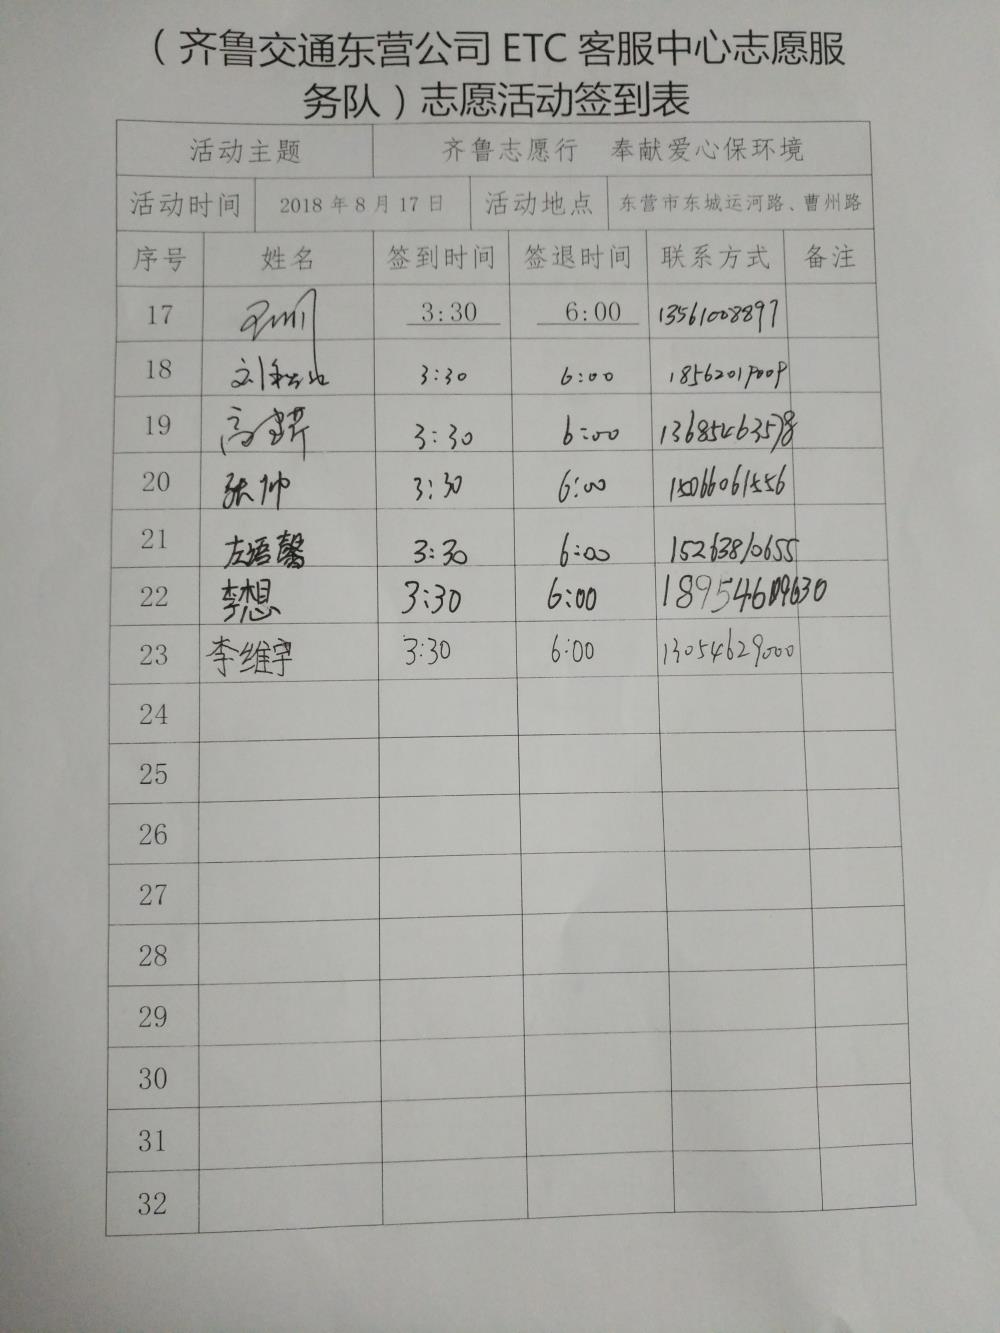 （齐鲁交通东营公司 ETC 客服中心志愿服
务队）志愿活动签到表
活动主题 齐鲁志愿行 奉献爱心保环境
活动时间 2018 年 8 月 17 日 活动地点 东营市东城运河路、曹州路
序号 姓名 签到时间 签退时间 联系方式 备注
17 3:30 6:00 13561008897
18 3:30 6:00 18562019009
19 3:30 6:00 13685463578
20 张帅 3:30 6:00 15066061556
21 左语馨 3:30 6:00 15263810655
22 李想 3:30 6:00
23 李维宇 3:30 6:00 13054629000
24
25
26
27
28
29
30
31
32